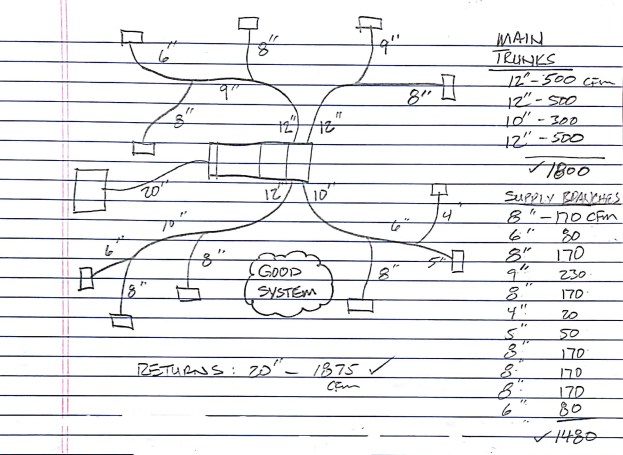 6"
8"
9"
9"
8"
8"
12"
12"
20"
12"
10"
10"
6"
8"
8"
6"
4"
5"
8"
GOOD
SYSTEM
RETURNS: 20" - 1875 ✓
CFM
MAIN
TRUNKS
12" - 500 CFM
12" - 500
10" - 300
12" - 500
✓1800
SUPPLY BRANCHES
8" - 170 CFM
6" 80
8" 170
9" 230
8" 170
4" 20
5" 50
8" 170
8" 170
8" 170
6" 80
✓1480